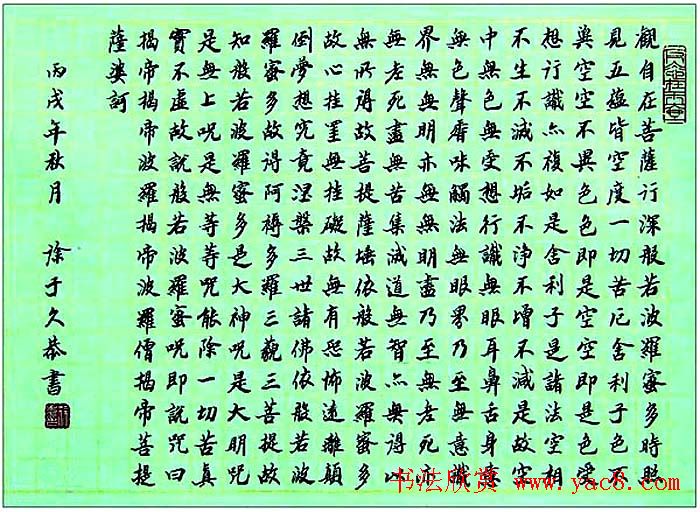 觀自在菩薩行深般若波羅蜜多時照
見五蘊皆空度一切苦厄舍利子色不
異空空不異色色即是空空即是色受
想行識亦複如是舍利子是諸法空相
不生不滅不垢不淨不增不減是故空
中無色無受想行識無眼耳鼻舌身意
無色聲香味觸法無眼界乃至無意識
界無無明亦無無明盡乃至無老死亦
無老死盡無苦集滅道無智亦無得以
無所得故菩提薩埵依般若波羅蜜多
故心挂罣無挂礙故無有恐怖遠離顛
倒夢想究竟涅槃三世諸佛依般若波
羅蜜多故得阿耨多羅三藐三菩提故
知般若波羅蜜多是大神咒是大明咒
是無上咒是無等等咒能除一切苦真
實不虛故說般若波羅蜜咒即說咒曰
揭帝揭帝波羅揭帝波羅僧揭帝菩提
薩婆訶
丙戌年秋月 徐于久恭書
书法欣赏 www.yac8.com